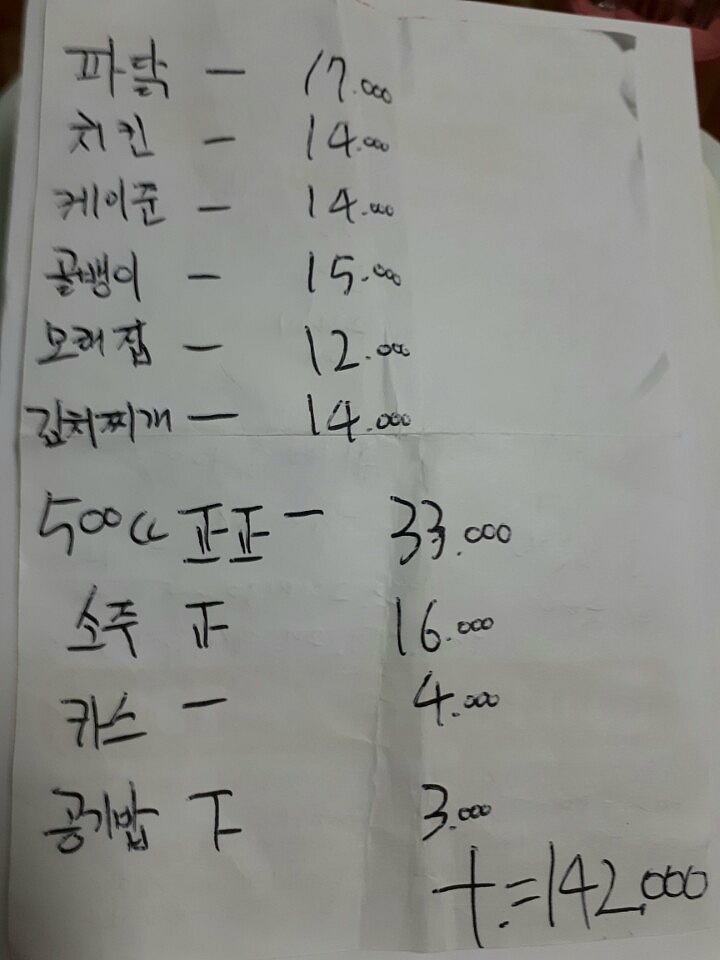 파닭 - 17.000
치킨 - 14.000
케이준 - 14.000
골뱅이 - 15.000
모래집 - 12.000
김치찌개 - 14.000
500cc 正正一 33.000
소주 正 16.000
카스 一 4.000
공기밥 下 3.000
+.=142.000